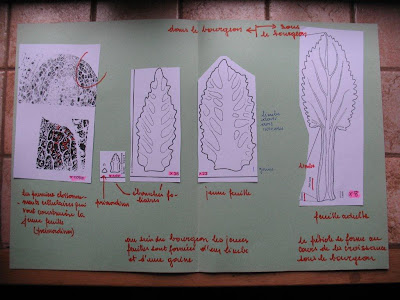 dans le bourgeon ← → sous
le bourgeon
les premiers cloisonne-
-ments cellulaires qui
vont construire la
jeune feuille
(primordium)
primordium
ébauches fo-
liaires
jeune feuille
limbe
gaine
limbe
feuille adulte
au sein du bourgeon les jeunes
feuilles sont formées d'un limbe
et d'une gaine
le pétiole se forme au
cours de la croissance
sous le bourgeon